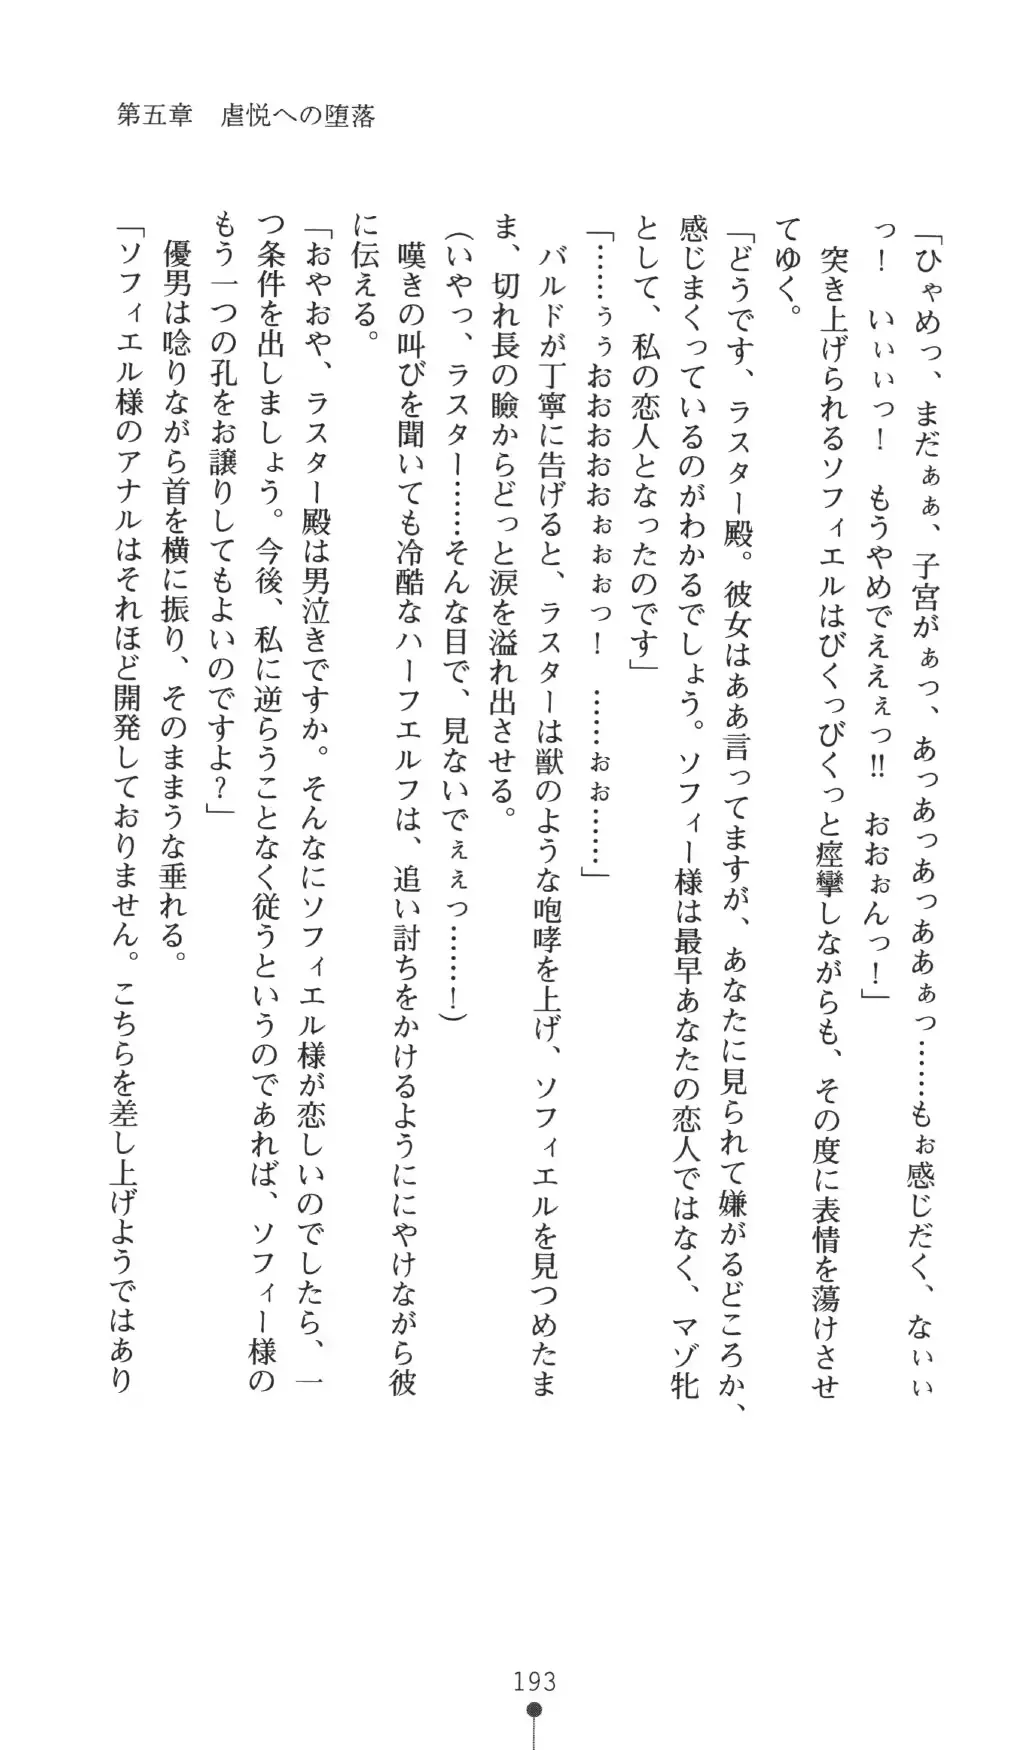 第五章　虐悦への堕落
「ひゃめっ、まだぁぁ、子宮がぁっ、あっあっあっああぁっ……もぉ感じだく、なぃぃ
っ！　いぃぃっ！　もうやめでええぇっ!!　おおぉんっ！」
　突き上げられるソフィエルはびくっびくっと痙攣しながらも、その度に表情を蕩けさせ
てゆく。
「どうです、ラスター殿。彼女はああ言ってますが、あなたに見られて嫌がるどころか、
感じまくっているのがわかるでしょう。ソフィー様は最早あなたの恋人ではなく、マゾ牝
として、私の恋人となったのです」
「……ぅぅおおおおぉぉぉっ！　……ぉぉ……」
　バルドが丁寧に告げると、ラスターは獣のような咆哮を上げ、ソフィエルを見つめたま
ま、切れ長の瞼からどっと涙を溢れ出させる。
（いやっ、ラスター……そんな目で、見ないでぇぇっ……！）
　嘆きの叫びを聞いても冷酷なハーフエルフは、追い討ちをかけるようににやけながら彼
に伝える。
「おやおや、ラスター殿は男泣きですか。そんなにソフィエル様が恋しいのでしたら、一
つ条件を出しましょう。今後、私に逆らうことなく従うというのであれば、ソフィー様の
もう一つの孔をお譲りしてもよいのですよ？」
　優男は唸りながら首を横に振り、そのままうな垂れる。
「ソフィエル様のアナルはそれほど開発しておりません。こちらを差し上げようではあり
193